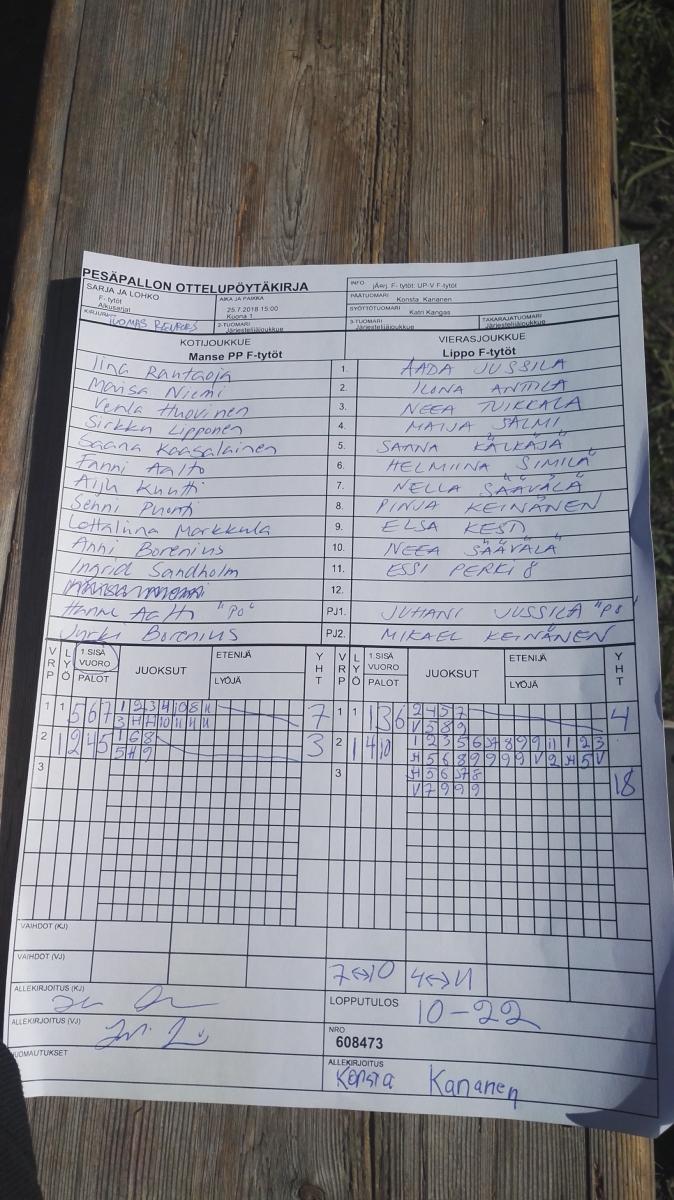 PESÄPALLON OTTELUPÖYTÄKIRJA
INFO jÄerj. F- tytöt: UP-V F-tytöt
SARJA JA LOHKO
F- tytöt
Alkusarjat
AIKA JA PAIKKA
25.7.2018 15:00
Kuona 1
PÄÄTUOMARI Konsta Kananen
SYÖTTÖTUOMARI Katri Kangas
KIRJURI TUOMAS
2-TUOMARI Järjestelijäjoukkue
3-TUOMARI Järjestelijäjoukkue
TAKARAJATUOMARI Järjestelijäjoukkue
KOTIJOUKKUE VIERASJOUKKUE
Manse PP F-tytöt Lippo F-tytöt
Iina Rantaoja 1. AADA JUSSILA
Maisa Niemi 2. ILONA ANTTILA
Venla Huovinen 3. NEEA TUIKKALA
Sirkku Lipponen 4. MAIJA SALMI
Saana Kaasalainen 5. SAANA KÄLKÄJÄ
Fanni Aalto 6. HELMIINA SIMILÄ
Aiju Knutti 7. NELLA SÄÄVÄLÄ
Senni Puonti 8. PINJA KEINÄNEN
Lottaliina Markkula 9. ELSA KESTI
Anni Borenius 10. NEEA SÄÄVÄLÄ
Ingrid Sandholm 11. ESSI PERKI
12.
Hanne Aalto "PO" PJ1. JUHANI JUSSILA "PO"
Jyrki Borenius PJ2. MIKAEL KEINÄNEN
VRP LYÖ 1.SISÄ VUORO PALOT JUOKSUT ETENIJÄ LYÖJÄ YHT VRP LYÖ 1.SISÄ VUORO PALOT JUOKSUT ETENIJÄ LYÖJÄ YHT
1 1 5 6 7 1 2 3 4 10 8 11 7 1 1 1 3 6 2 4 5 7 4
V 5 8 9
2 1 2 4 5 1 6 8 3 2 1 4 10 1 2 3 5 6 7 8 9 9 11 1 2 3
5 H 9
3 3
V 7 9 9 9 18
VAIHDOT (KJ)
VAIHDOT (VJ) 7↔10 4↔11
ALLEKIRJOITUS (KJ)
LOPPUTULOS 10-22
ALLEKIRJOITUS (VJ)
NRO
608473
HUOMAUTUKSET
ALLEKIRJOITUS
Konsta Kananen